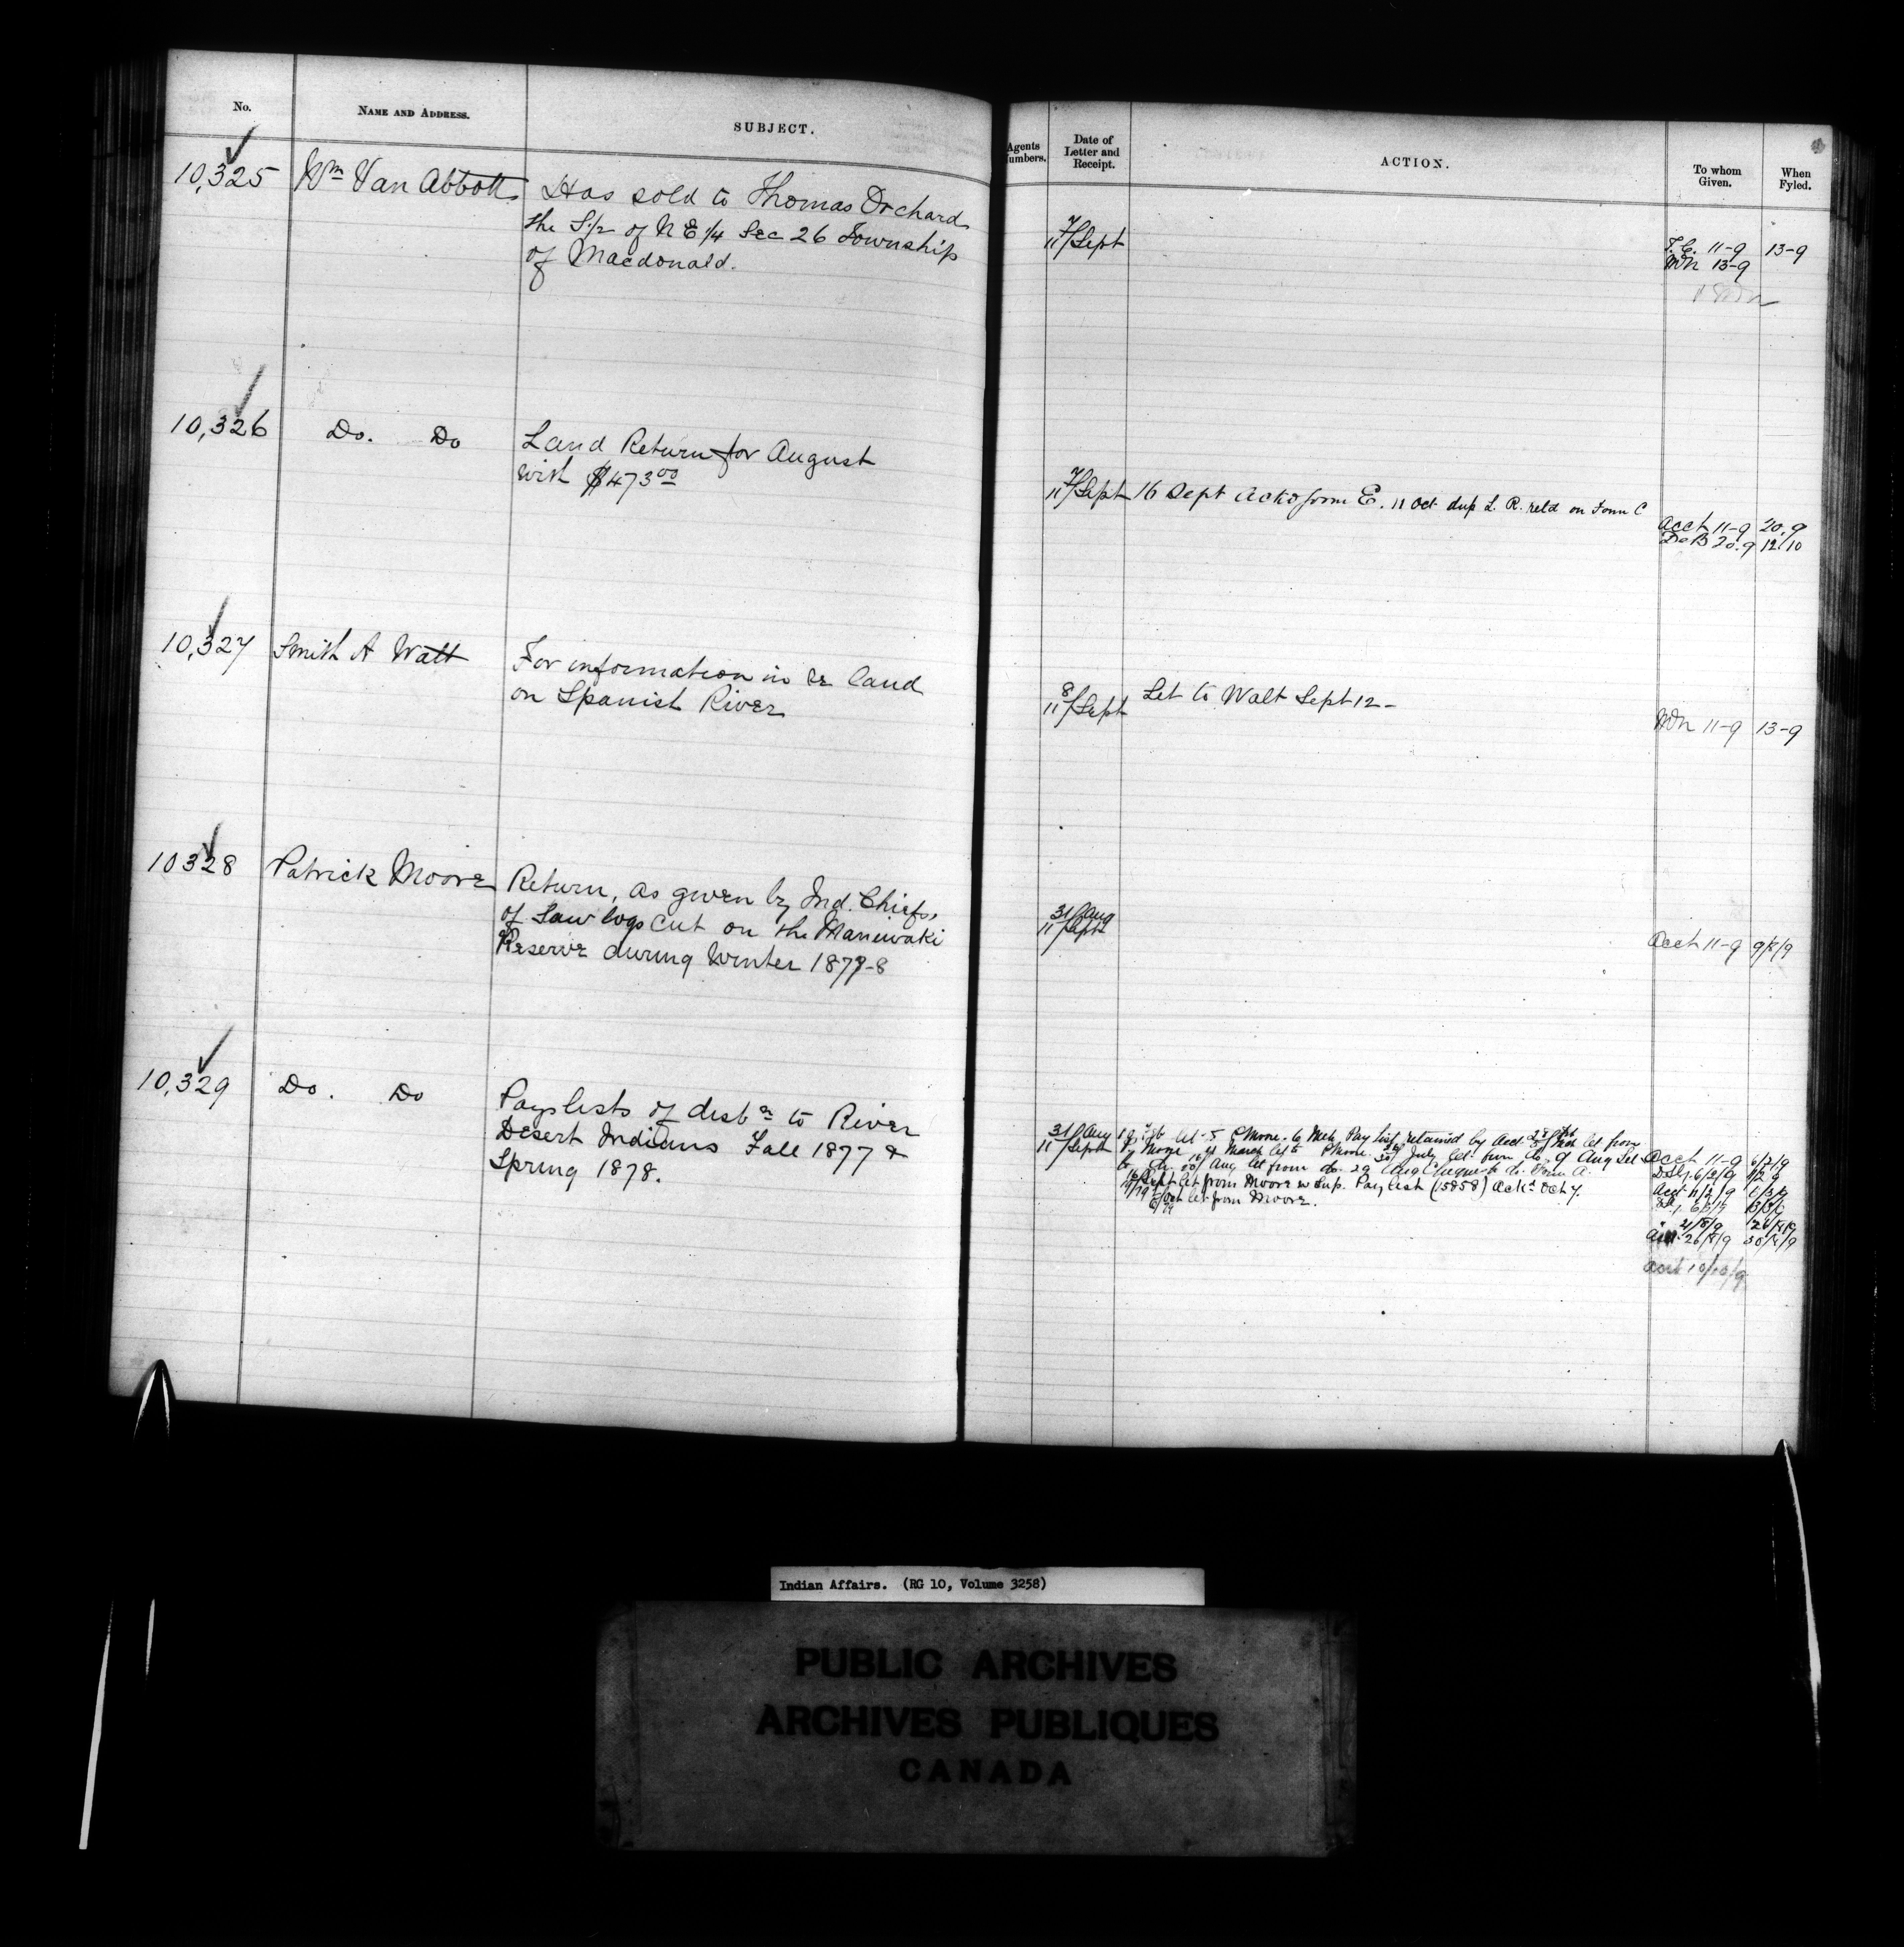 No.
NAME AND ADDRESS.
SUBJECT.
10,325
Wm Van Abbott
Has sold to Thomas Orchard
the S 1/2 of N E 1/4 Sec 26 Township
of Macdonald.
10,326
Do. Do
Land Return for August
with $473 00
10,327
Smith A Watt
For information in re land
on Spanish River
10328
Patrick Moore
Return, as given by Ind. Chiefs,
of Saw logs cut on the Maniwaki
Reserve during Winter 1877-8
10,329
Do. Do
Pays lists of
to River
Desert Indians Fall 1877 &
Spring 1878.
Agents
Numbers.
Date of
Letter and
Receipt.
ACTION.
To whom
Given.
When
Fyled.
7
11/Sept
11-9
13-9
13-9
7
11/Sept
16 Sept
from E. 11 Oct dup L. R. retd on Form C
Acct 11-9
20.9
De B 20.9
12/10
8
11/Sept
Let to Watt Sept 12-
11-9
13-9
31/Aug
11/Sept
Acct 11-9
31/Aug
11/Sept
Moore
Pay List retained by Acct
let from
Moore
March let to P Moore
July let from do. 9 Aug let
do
Aug let from do. 29 Aug
do. Form A.
Sept let from Moore w Sup. Pay list (15858) Ackd Oct 7.
Oct let from Moore.
Acct 11-9
6/2/9
6/2/9
Acct 11/2/9
21/8/9
26/8/9
26/8/9
30/8/9
Acct 10/10/9
Indian Affairs. (RG 10, Volume 3258)
PUBLIC ARCHIVES
ARCHIVES PUBLIQUES
CANADA